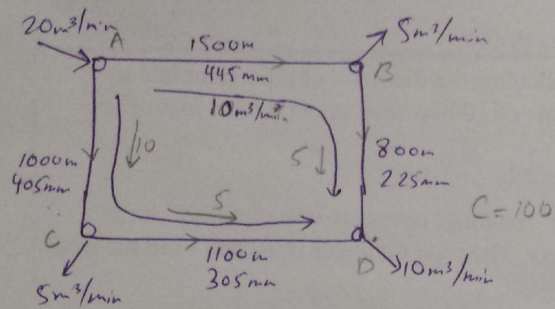 20m³/min
A
1500m
445mm
10m³/min.
5m³/min
B
10
5
800m
225mm
1000m
405mm
5
C = 100
C
1100m
305mm
D
10m³/min
5m³/min